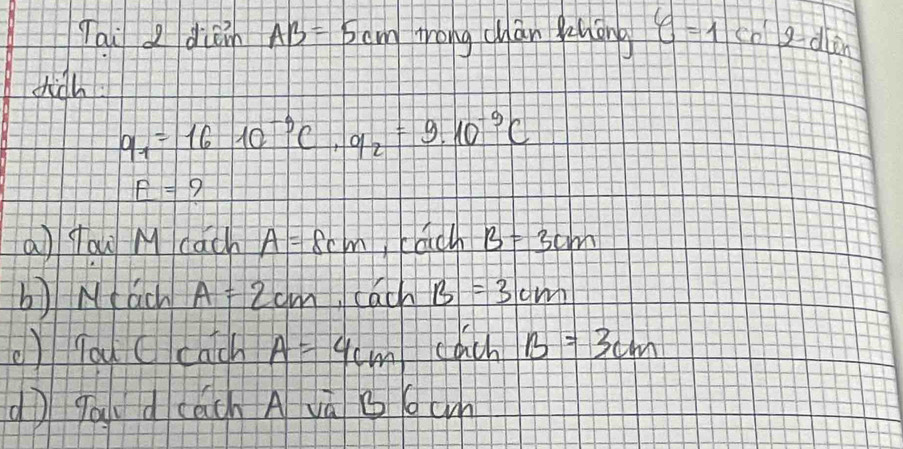 Tại 2 điểm AB = 5cm trong chân không ε = 1 có 2 điện
tích:
q₁ = 16 10⁻⁹C, q₂ = 9.10⁻⁹C
E = ?
a) Tại M cách A = 8cm, cách B = 3cm
b) N cách A = 2cm, cách B = 3cm
c) Tại C cách A = 4cm, cách B = 3cm
d) Tại d cách A và B 6 cm